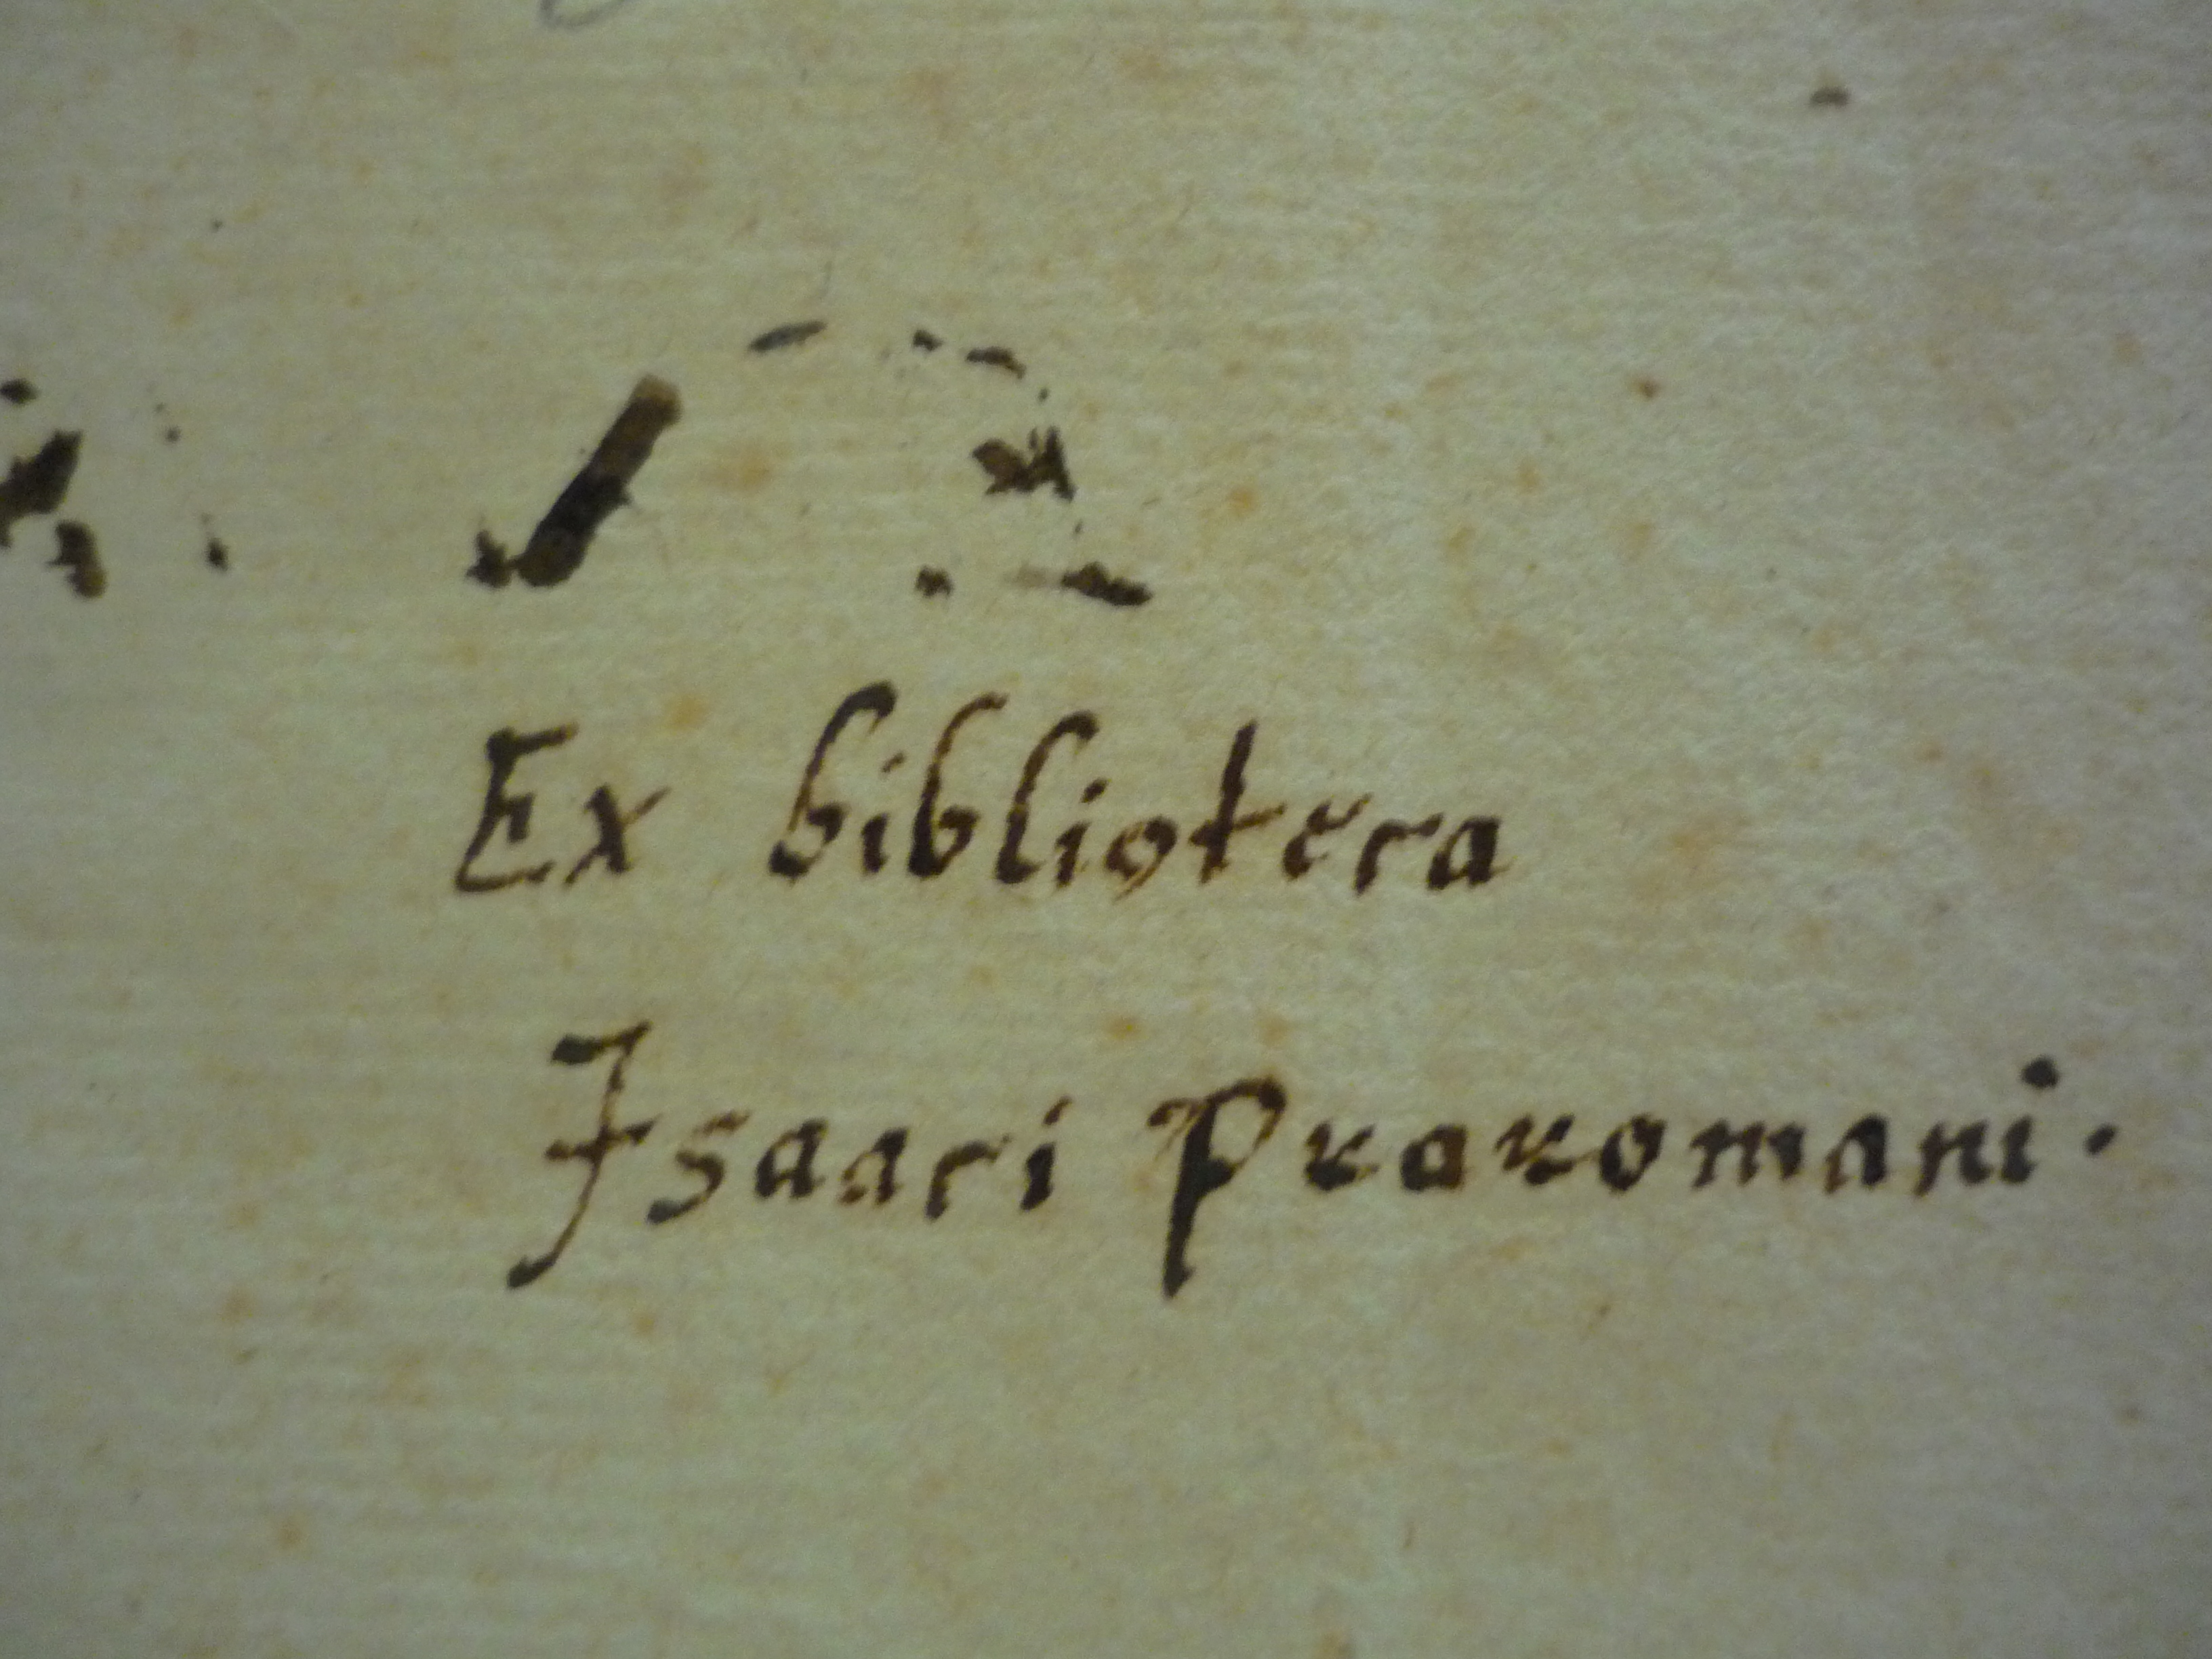 Ex biblioteca
Isaaci Praromani.